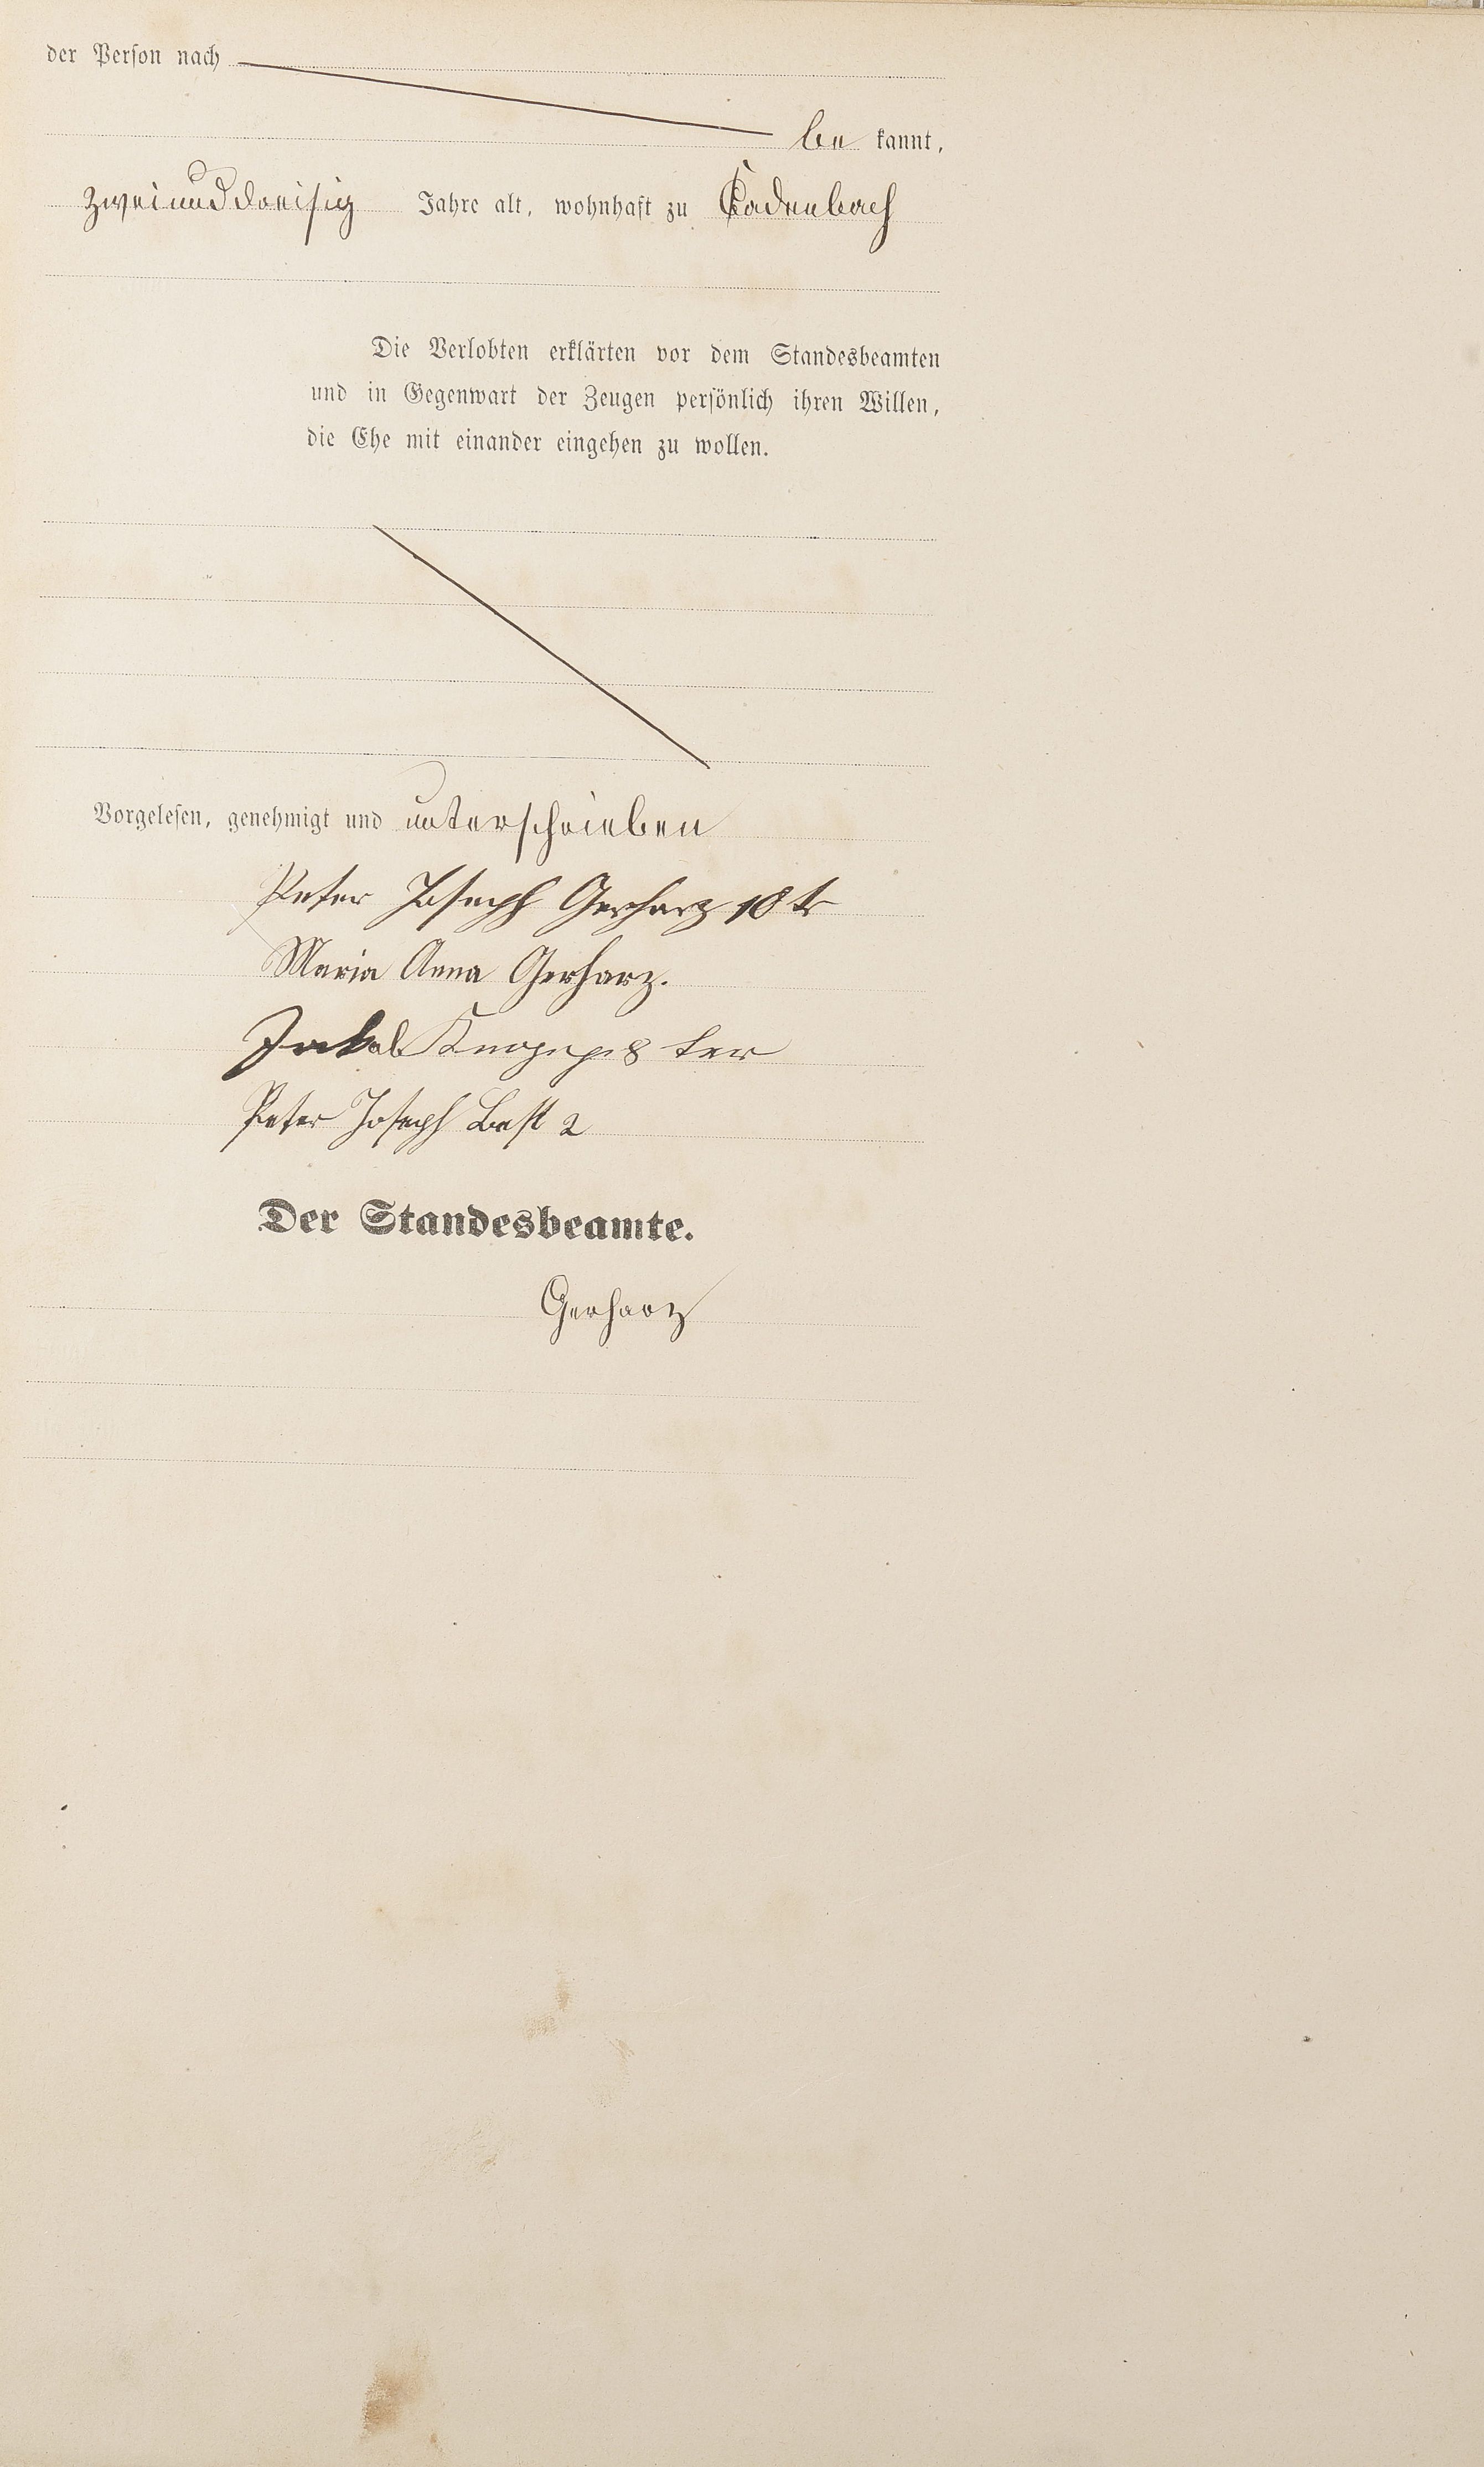 der Person nach
be kannt,
zweiunddreisig Jahre alt, wohnhaft zu Cadenbach
Die Verlobten erklärten vor dem Standesbeamten
und in Gegenwart der Zeugen persönlich ihren Willen,
die Ehe mit einander eingehen zu wollen.
Vorgelesen, genehmigt und unterschrieben
Peter Joseph Gerharz 10t
Maria Anna Gerharz.
Jakob
Peter Joseph Best 2
Der Standesbeamte.
Gerharz